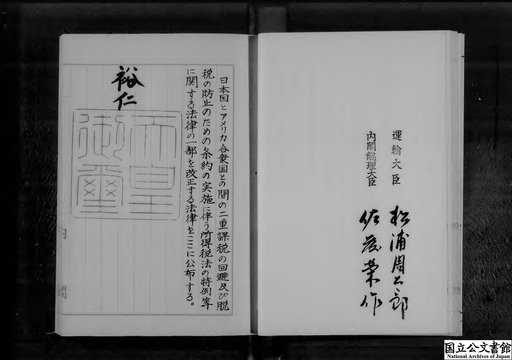 運輸大臣
松浦周太郎
内閣総理大臣
佐藤榮作
日本国とアメリカ合衆国との間の二重課税の回避及び脱
税の防止のための条約の実施に伴う所得税法の特例等
に関する法律の一部を改正する法律をここに公布する。
裕仁
天皇
御璽
国立公文書館
National Archives of Japan